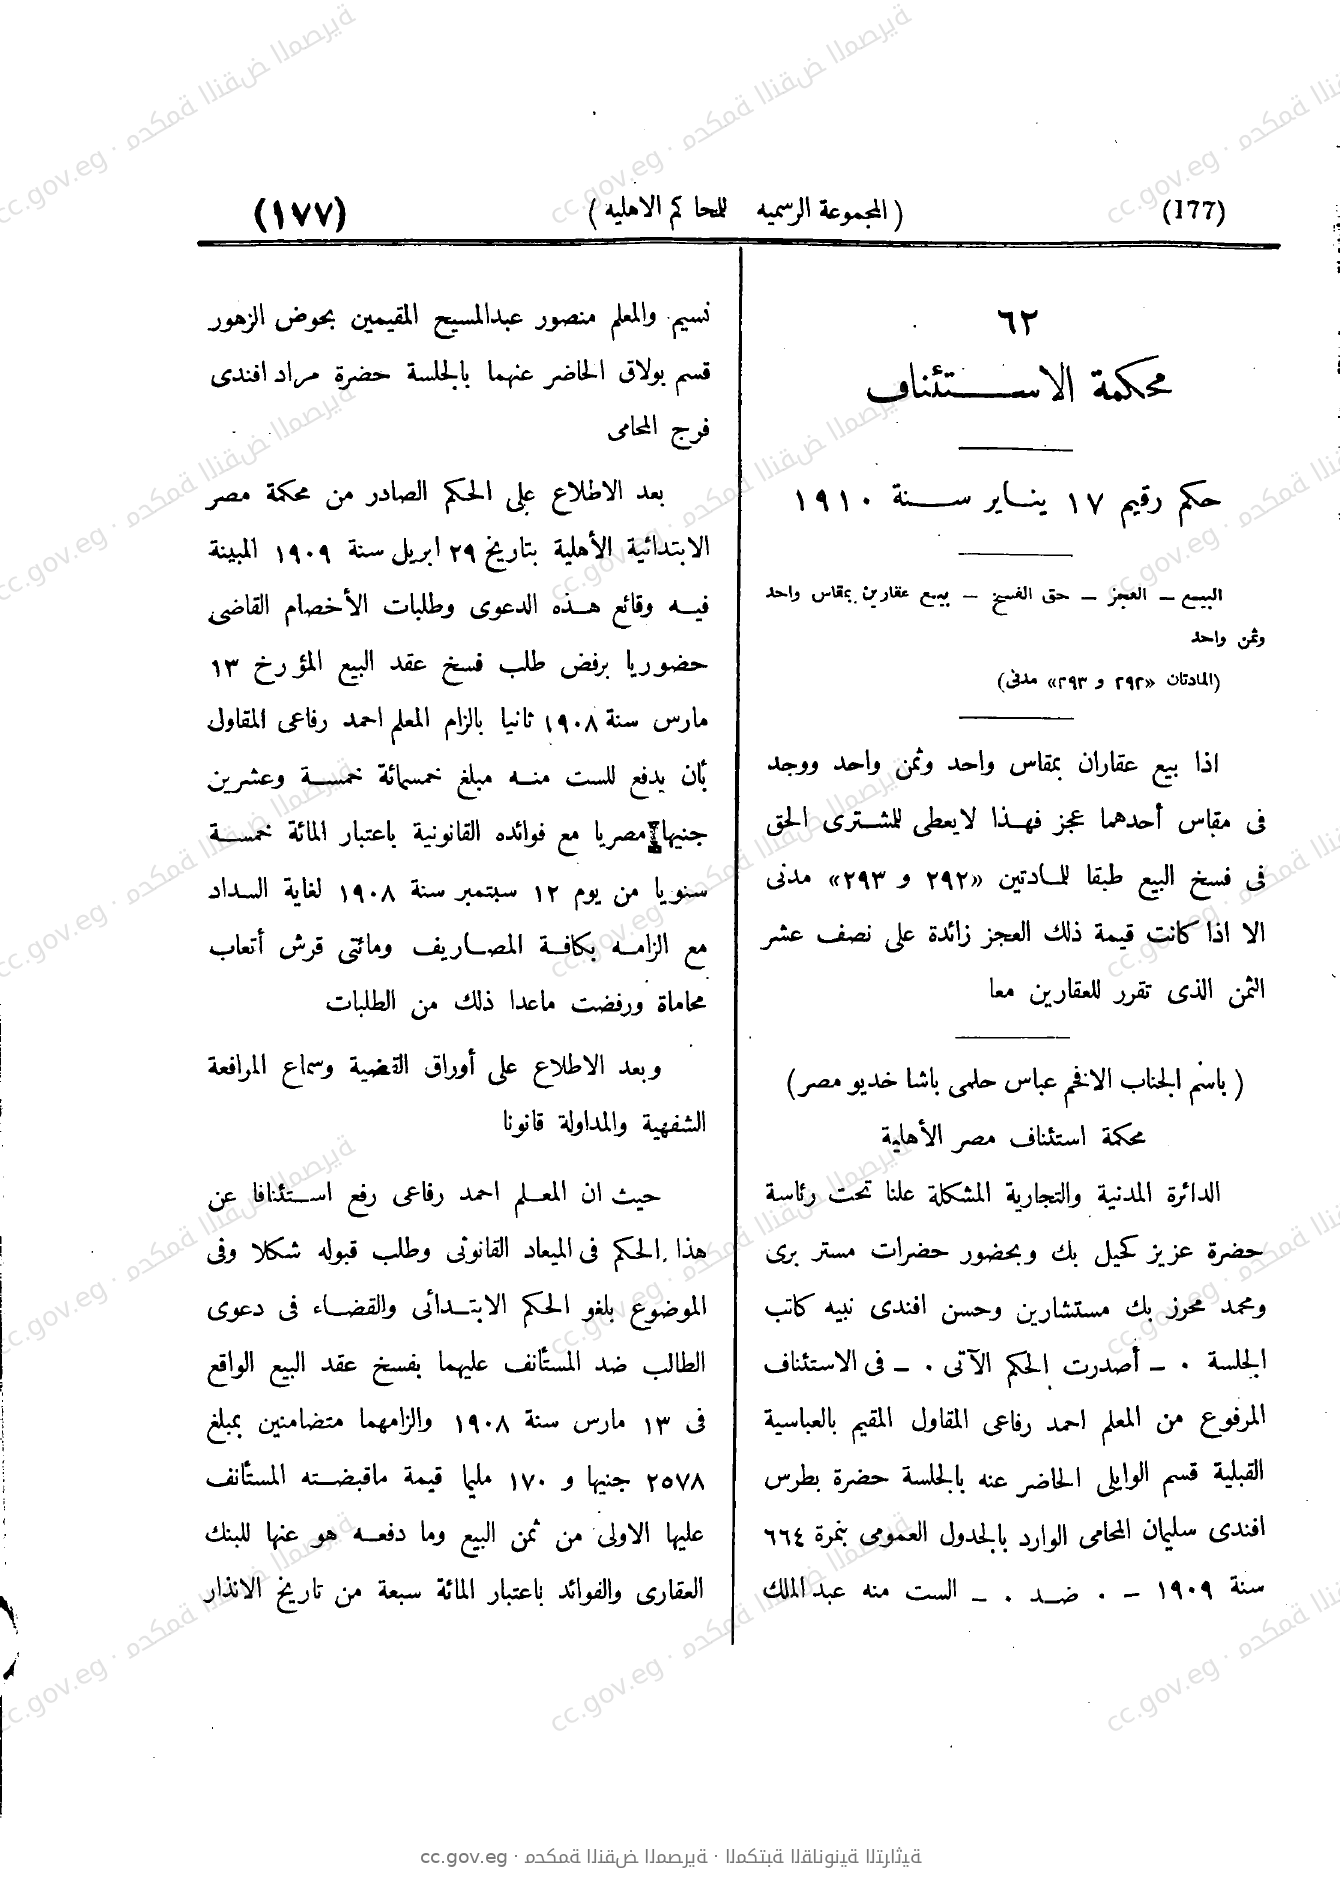 (177) (المجموعة الرسميه للمحاكم الاهليه) (١٧٧)
٦٢
محكمة الاستئناف
حكم رقيم ١٧ يناير سنة ١٩١٠
البيع — العجز — حق الفسخ — بيع عقارين بمقاس واحد
وثمن واحد
(المادتان «٢٩٢ و ٢٩٣» مدنى)
اذا بيع عقاران بمقاس واحد وثمن واحد ووجد
فى مقاس أحدهما عجز فهذا لايعطى للمشترى الحق
فى فسخ البيع طبقا للمادتين «٢٩٢ و ٢٩٣» مدنى
الا اذا كانت قيمة ذلك العجز زائدة على نصف عشر
الثمن الذى تقرر للعقارين معا
(باسم الجناب الافخم عباس حلمى باشا خديو مصر)
محكمة استئناف مصر الأهلية
الدائرة المدنية والتجارية المشكلة علنا تحت رئاسة
حضرة عزيز كحيل بك وبحضور حضرات مستر برى
ومحمد محرز بك مستشارين وحسن افندى نبيه كاتب
الجلسة ٠ — أصدرت الحكم الآتى ٠ — فى الاستئناف
المرفوع من المعلم احمد رفاعى المقاول المقيم بالعباسية
القبلية قسم الوايلى الحاضر عنه بالجلسة حضرة بطرس
افندى سليمان المحامى الوارد بالجدول العمومى بنمرة ٦٦٤
سنة ١٩٠٩ — ٠ ضد ٠ — الست منه عبد الملك
نسيم والمعلم منصور عبدالمسيح المقيمين بحوض الزهور
قسم بولاق الحاضر عنهما بالجلسة حضرة مراد افندى
فرج المحامى
بعد الاطلاع على الحكم الصادر من محكمة مصر
الابتدائية الأهلية بتاريخ ٢٩ ابريل سنة ١٩٠٩ المبينة
فيه وقائع هذه الدعوى وطلبات الأخصام القاضى
حضوريا برفض طلب فسخ عقد البيع المؤرخ ١٣
مارس سنة ١٩٠٨ ثانيا بالزام المعلم احمد رفاعى المقاول
بأن يدفع للست منه مبلغ خمسمائة خمسة وعشرين
جنيها مصريا مع فوائده القانونية باعتبار المائة خمسة
سنويا من يوم ١٢ سبتمبر سنة ١٩٠٨ لغاية السداد
مع الزامه بكافة المصاريف ومائتى قرش أتعاب
محاماة ورفضت ماعدا ذلك من الطلبات
وبعد الاطلاع على أوراق القضية وسماع المرافعة
الشفهية والمداولة قانونا
حيث ان المعلم احمد رفاعى رفع استئنافا عن
هذا الحكم فى الميعاد القانونى وطلب قبوله شكلا وفى
الموضوع بلغو الحكم الابتدائى والقضاء فى دعوى
الطالب ضد المستأنف عليهما بفسخ عقد البيع الواقع
فى ١٣ مارس سنة ١٩٠٨ والزامهما متضامنين بمبلغ
٢٥٧٨ جنيها و ١٧٠ مليما قيمة ماقبضته المستأنف
عليها الاولى من ثمن البيع وما دفعه هو عنها للبنك
العقارى والفوائد باعتبار المائة سبعة من تاريخ الانذار
cc.gov.eg · محكمة النقض المصرية · المكتبة القانونية التراثية